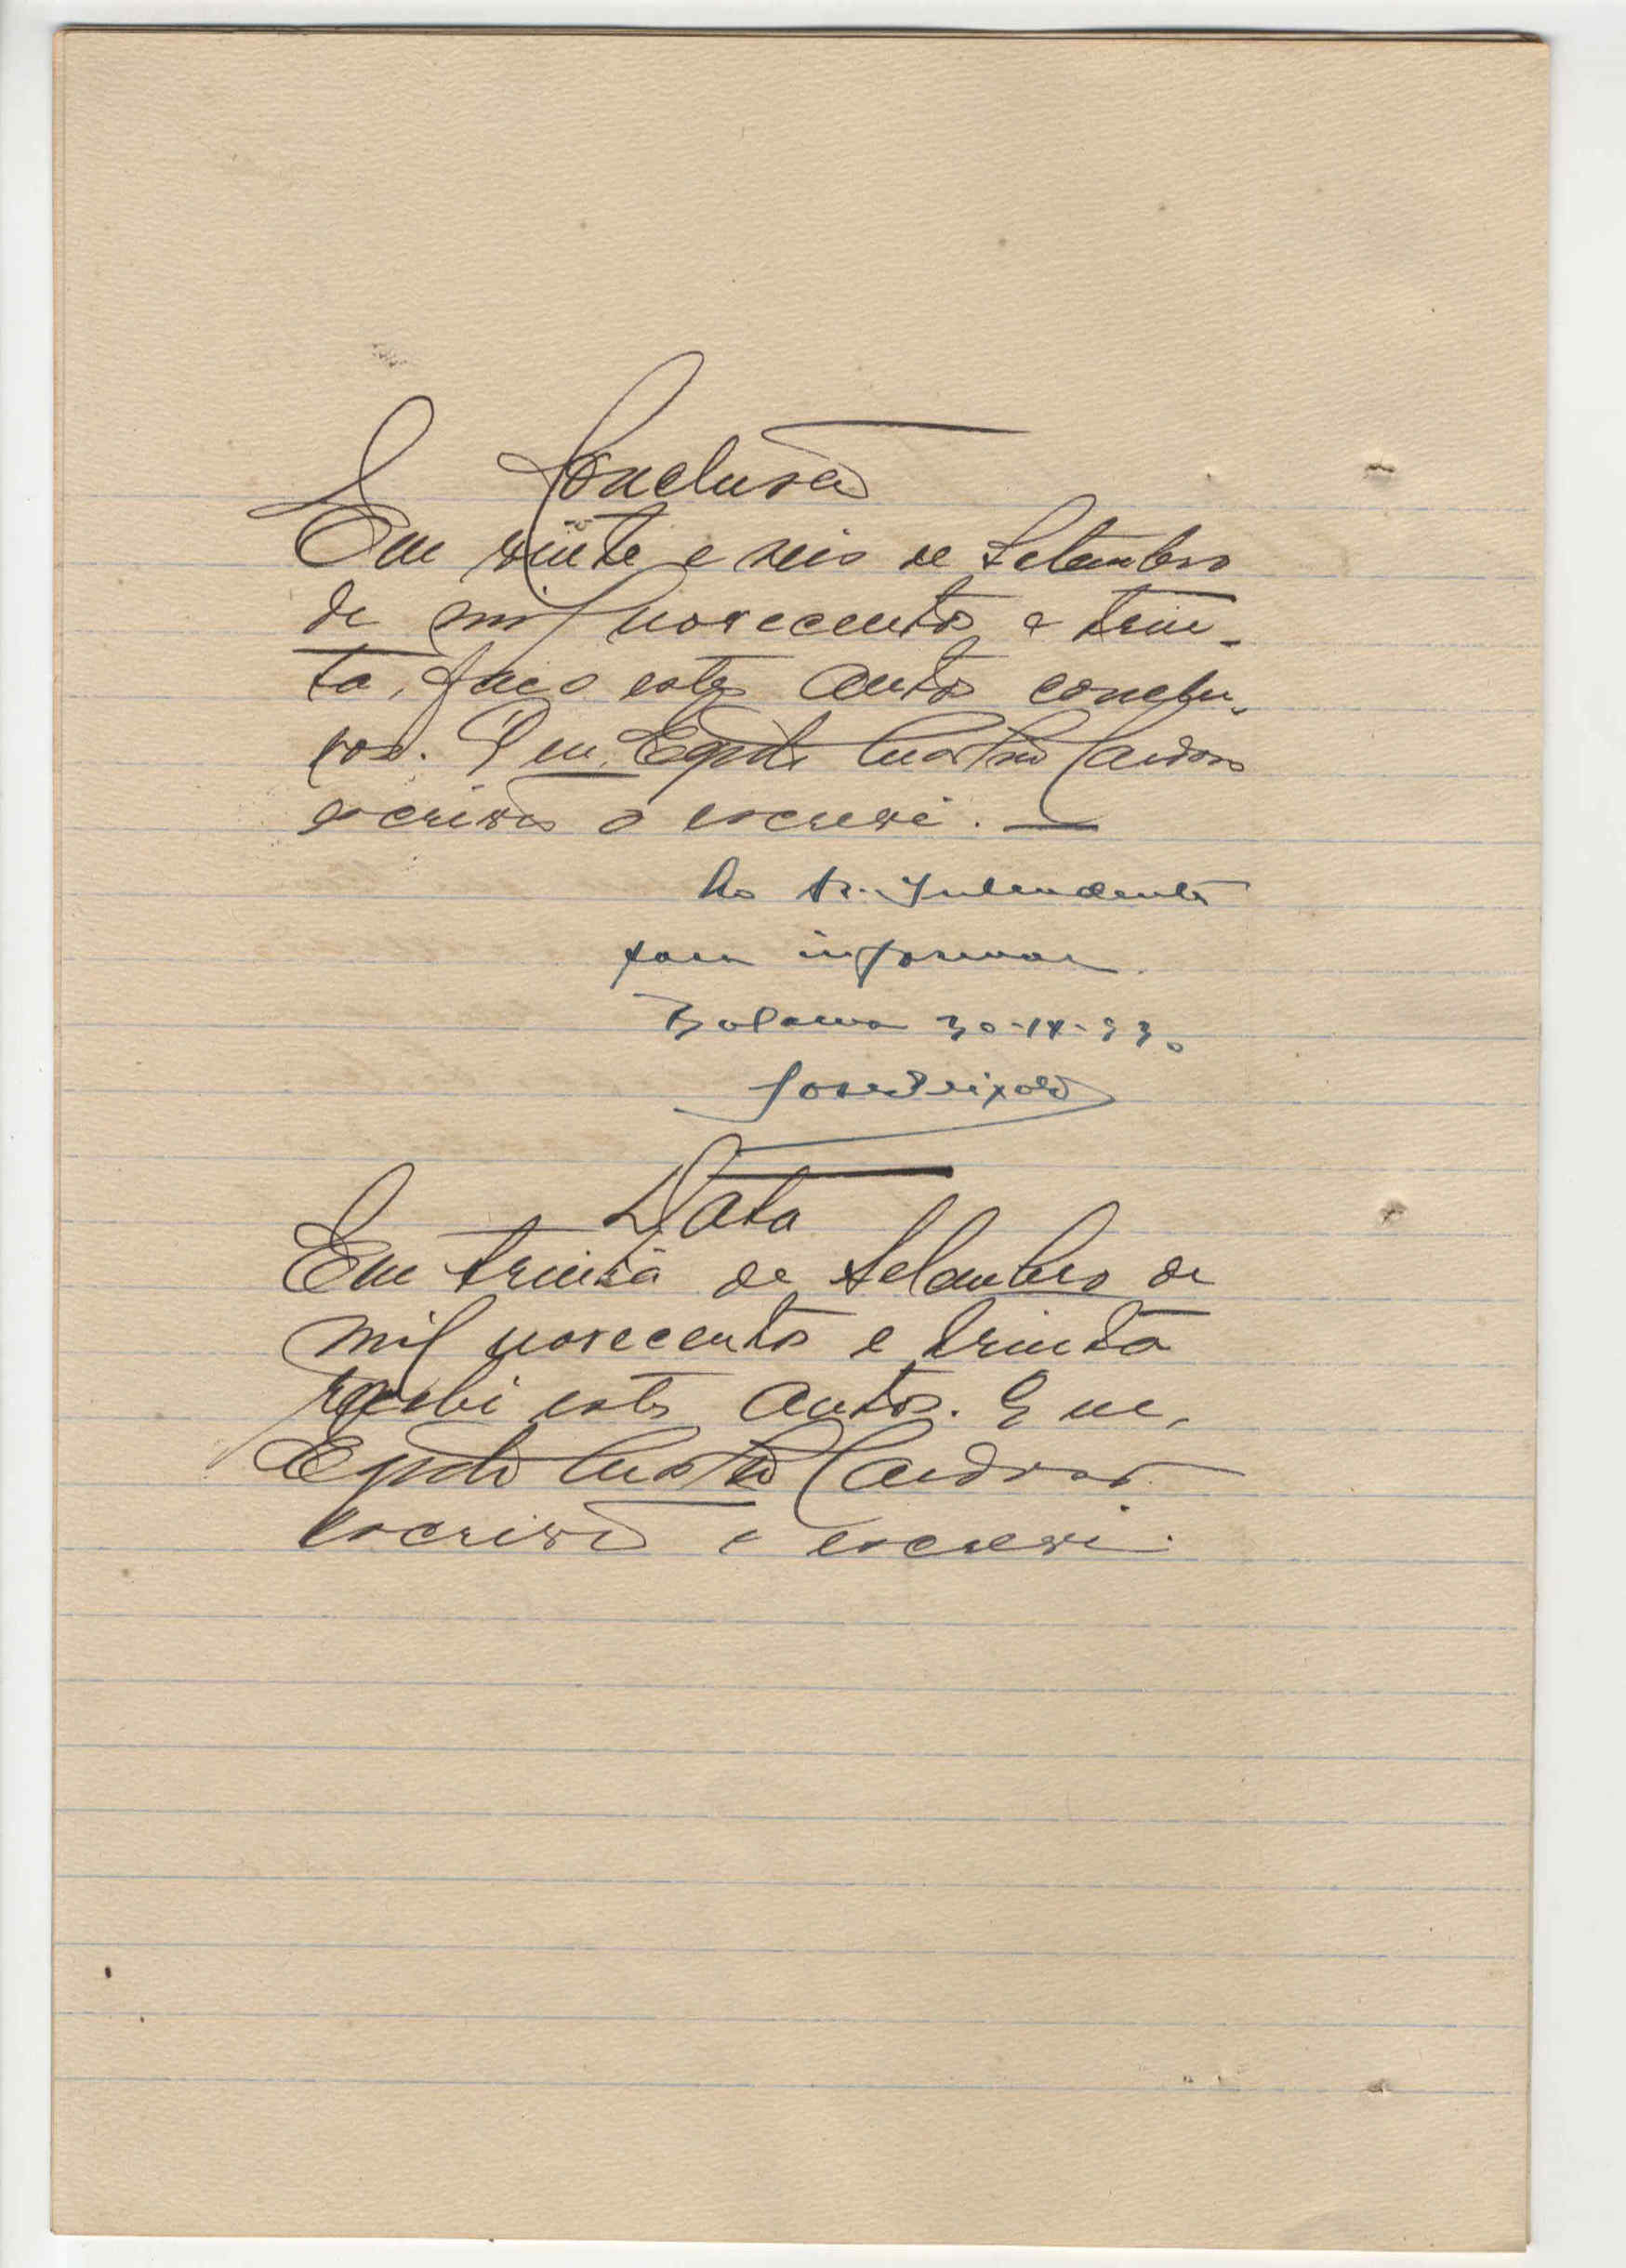 Conclusão
Em vinte e seis de Setembro
de mil novecentos e trin-
ta, faço estes autos conclu-
sos. E eu, Cardoso
escrivão o escrevi.
Ao Sr. Intendente
para informar
Bolama 30-IX-930
José Peixoto
Data
Em trinta de Setembro de
mil novecentos e trinta
recebi estes autos. E eu,
Cardoso
escrivão o escrevi.